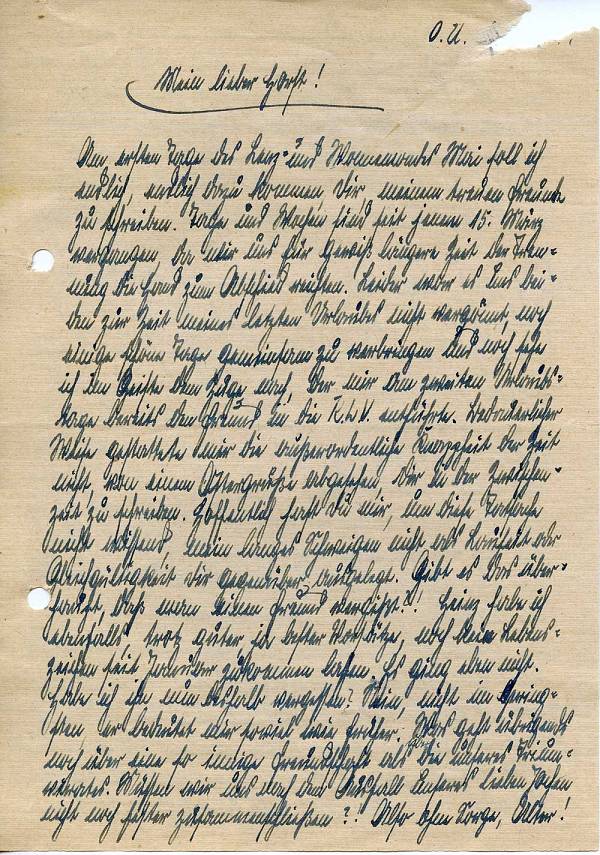 O.U.
Mein lieber Horst!
Am ersten Tage des Lenz- und Wonnemondes Mai soll ich
endlich, endlich dazu kommen, Dir, meinem treuen Freunde
zu schreiben. Tage und Wochen sind seit jenem 15. März
vergangen, da wir uns für gewiß längere Zeit der Tren-
nung die Hand zum Abschied reichten. Leider war es uns bei-
den zur Zeit meines letzten Urlaubes nicht vergönnt, noch
einige schöne Tage gemeinsam zu verbringen und noch sehe
ich im Geiste dem Zuge nach, der mir am zweiten Urlaubs-
tage bereits den Freund in die K.L.V. entführte. Bedauerlicher
Weise gestattete mir die außerordentliche Knappheit der Zeit
nicht, von einem Ostergruße abgesehen Dir in der Zwischen-
zeit zu schreiben. Hoffentlich hast Du mir, um diese Tatsache
nicht wissend, mein langes Schweigen nicht als Faulheit oder
Gleichgültigkeit Dir gegenüber ausgelegt. Gibt es das über-
haupt, daß man einen Freund vergißt?! Heinz habe ich
ebenfalls, trotz guter ja bester Vorsätze, noch kein Lebens-
zeichen seit Januar zukommen lassen. Es ging eben nicht.
Habe ich ihn nun deshalb vergessen? Nein, nicht im Gering-
sten, er bedeutet mir soviel wie früher. Was geht übrigends
noch über eine so innige Freundschaft als die unseres Trium-
virates. Müssen wir uns nach dem Ausfall unseres lieben
nicht noch fester zusammenschließen?! Also ohn Sorge, Alter!